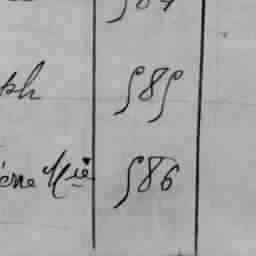 ph 585
ère Mie 586